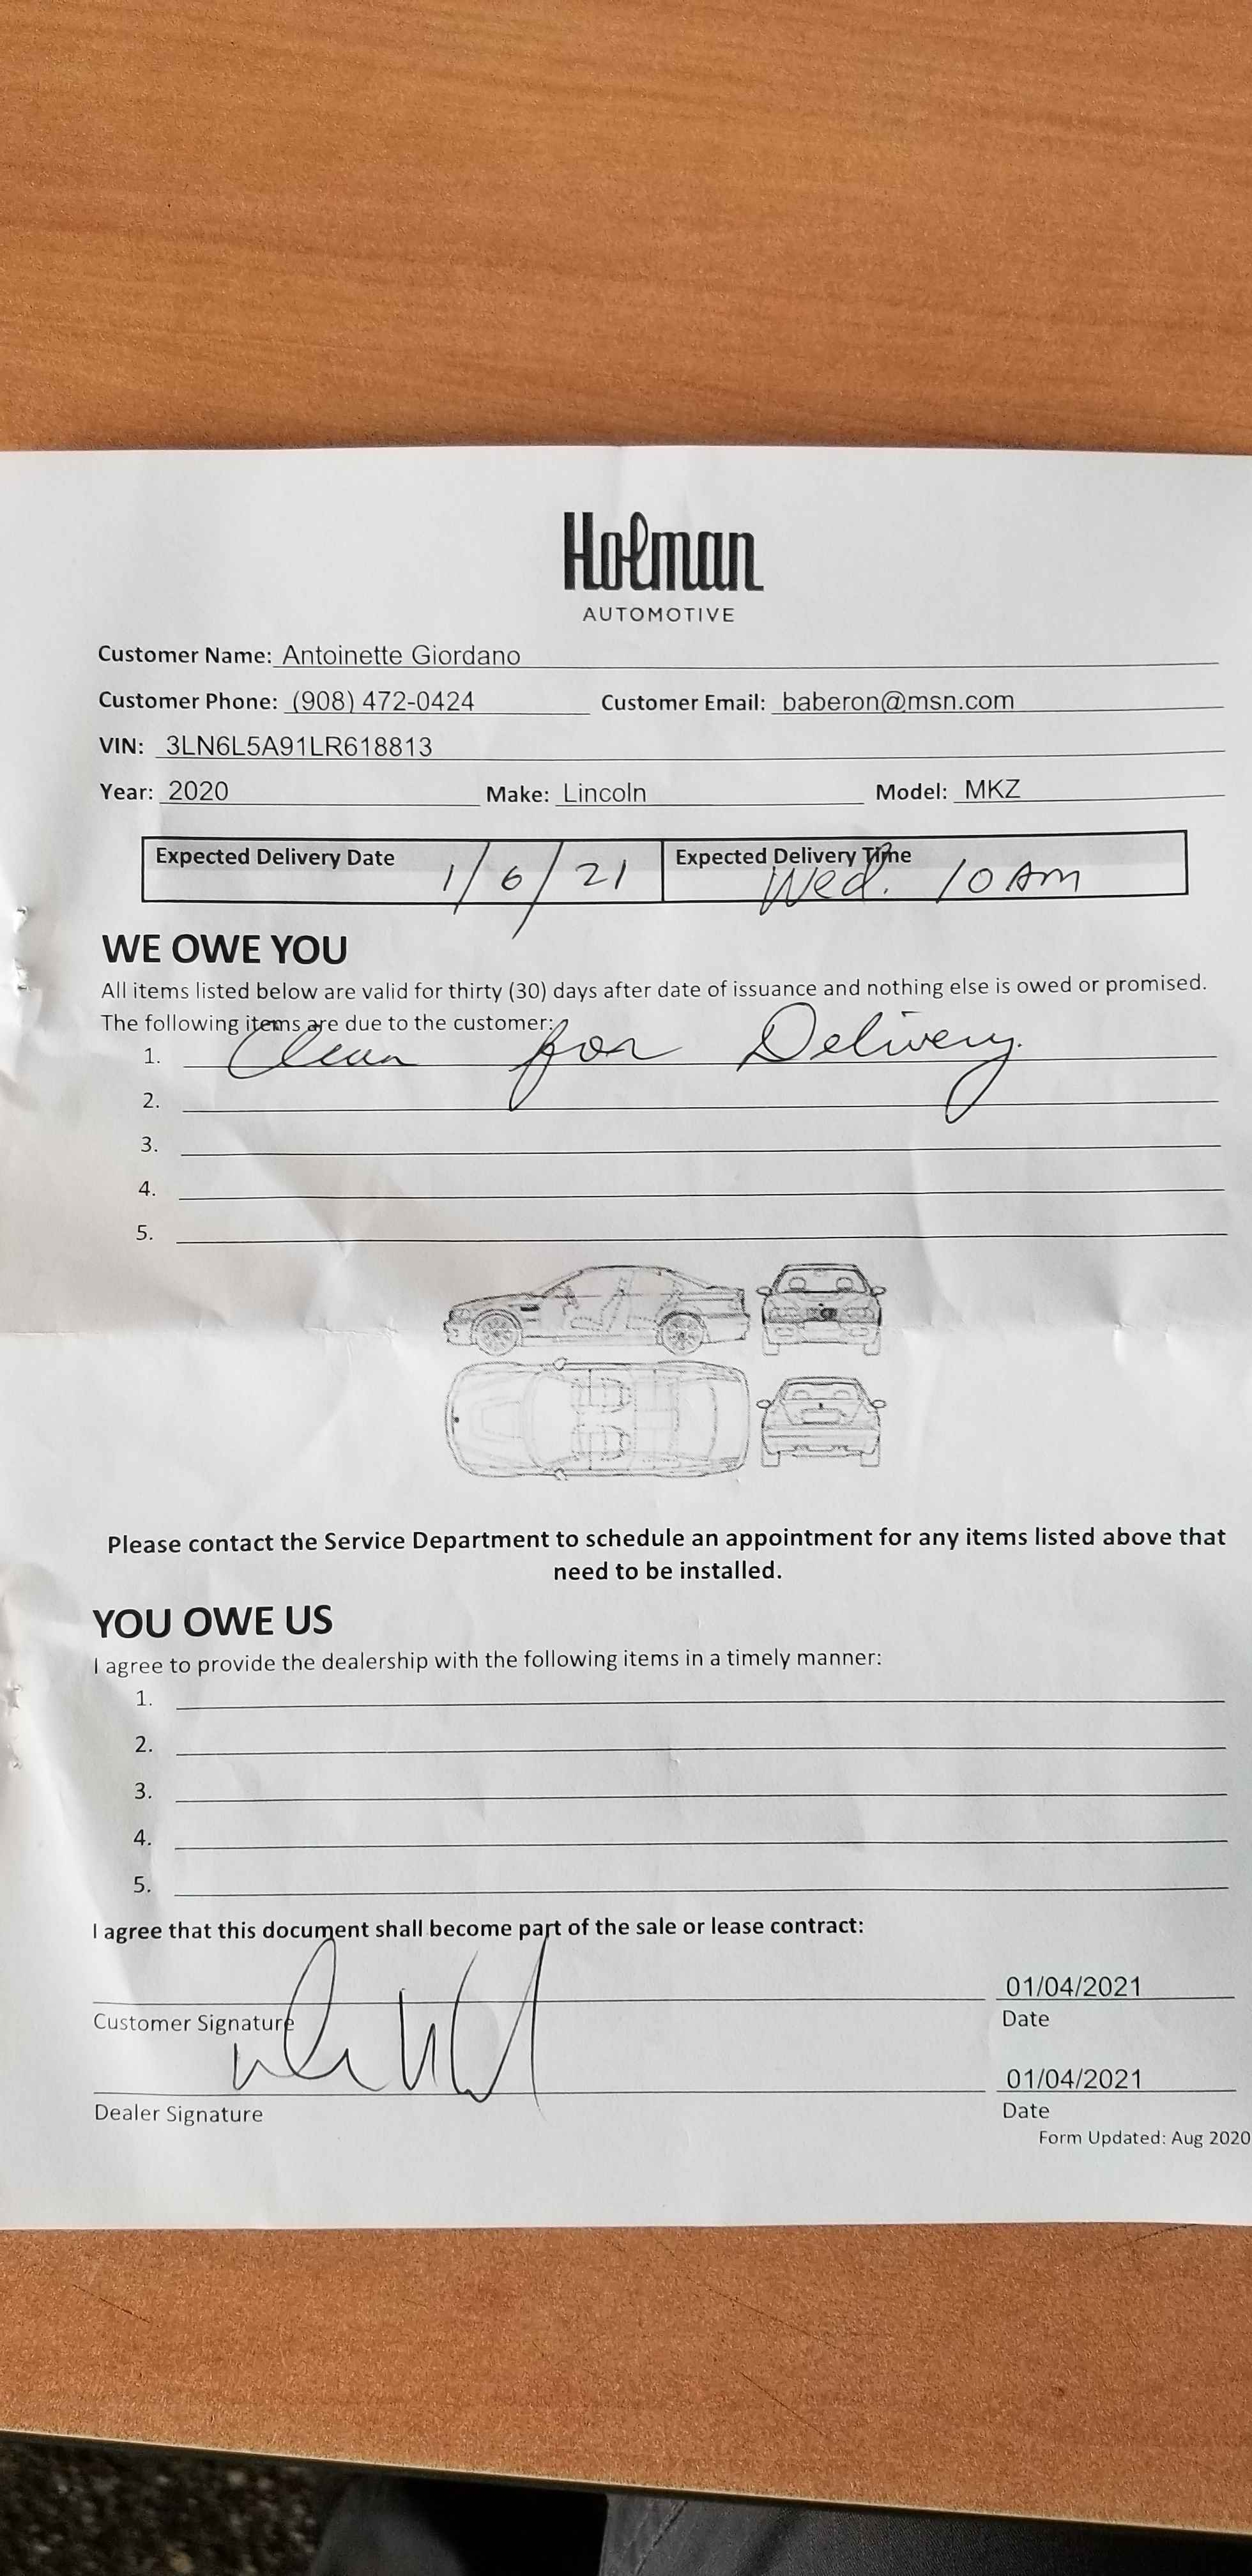 Holman
AUTOMOTIVE
Customer Name: Antoinette Giordano
Customer Phone: (908) 472-0424 Customer Email: baberon@msn.com
VIN: 3LN6L5A91LR618813
Year: 2020 Make: Lincoln Model: MKZ
Expected Delivery Date 1/6/21 Expected Delivery Time Wed. 10 Am
WE OWE YOU
All items listed below are valid for thirty (30) days after date of issuance and nothing else is owed or promised.
The following items are due to the customer:
1. Clean for Delivery.
2.
3.
4.
5.
Please contact the Service Department to schedule an appointment for any items listed above that
need to be installed.
YOU OWE US
I agree to provide the dealership with the following items in a timely manner:
1.
2.
3.
4.
5.
I agree that this document shall become part of the sale or lease contract:
01/04/2021
Customer Signature Date
01/04/2021
Dealer Signature Date
Form Updated: Aug 2020